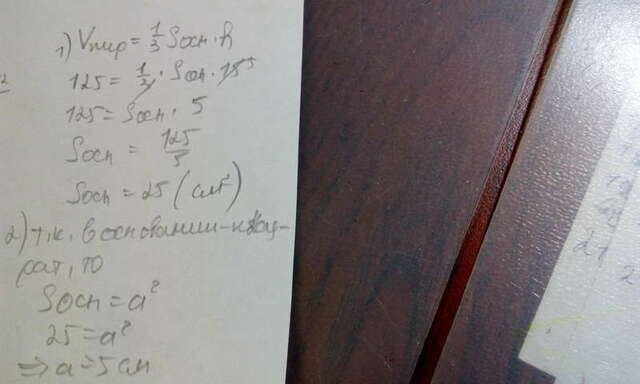 1) Vпир = 1/3 Sосн · h
125 = 1/3 · Sосн · 15 5
125 = Sосн · 5
Sосн = 125/5
Sосн = 25 (см²)
2) т.к. в основании - квад-
рат, то
Sосн = a²
25 = a²
⇒ a = 5 см
2
27
2